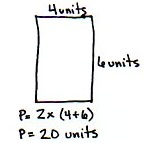 4 units
6 units
P= 2x (4+6)
P= 20 units